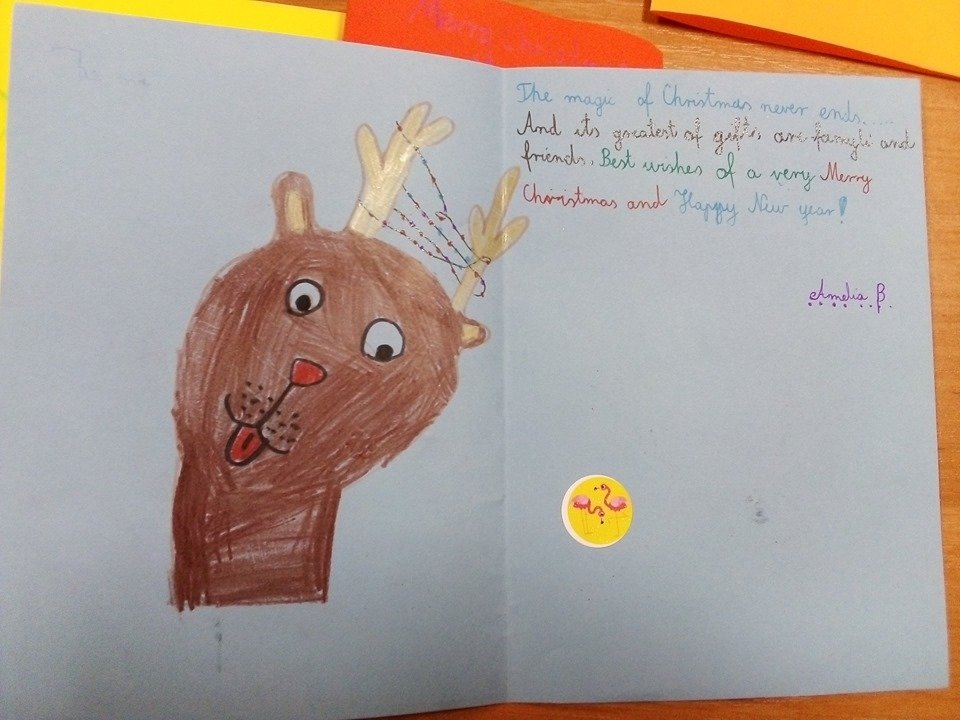 The me
Merry Christmas
The magic of Christmas never ends.....
And its greatest of gifts are famyli and
friends. Best wishes of a very Merry
Christmas and Happy New year!
Amelia B.